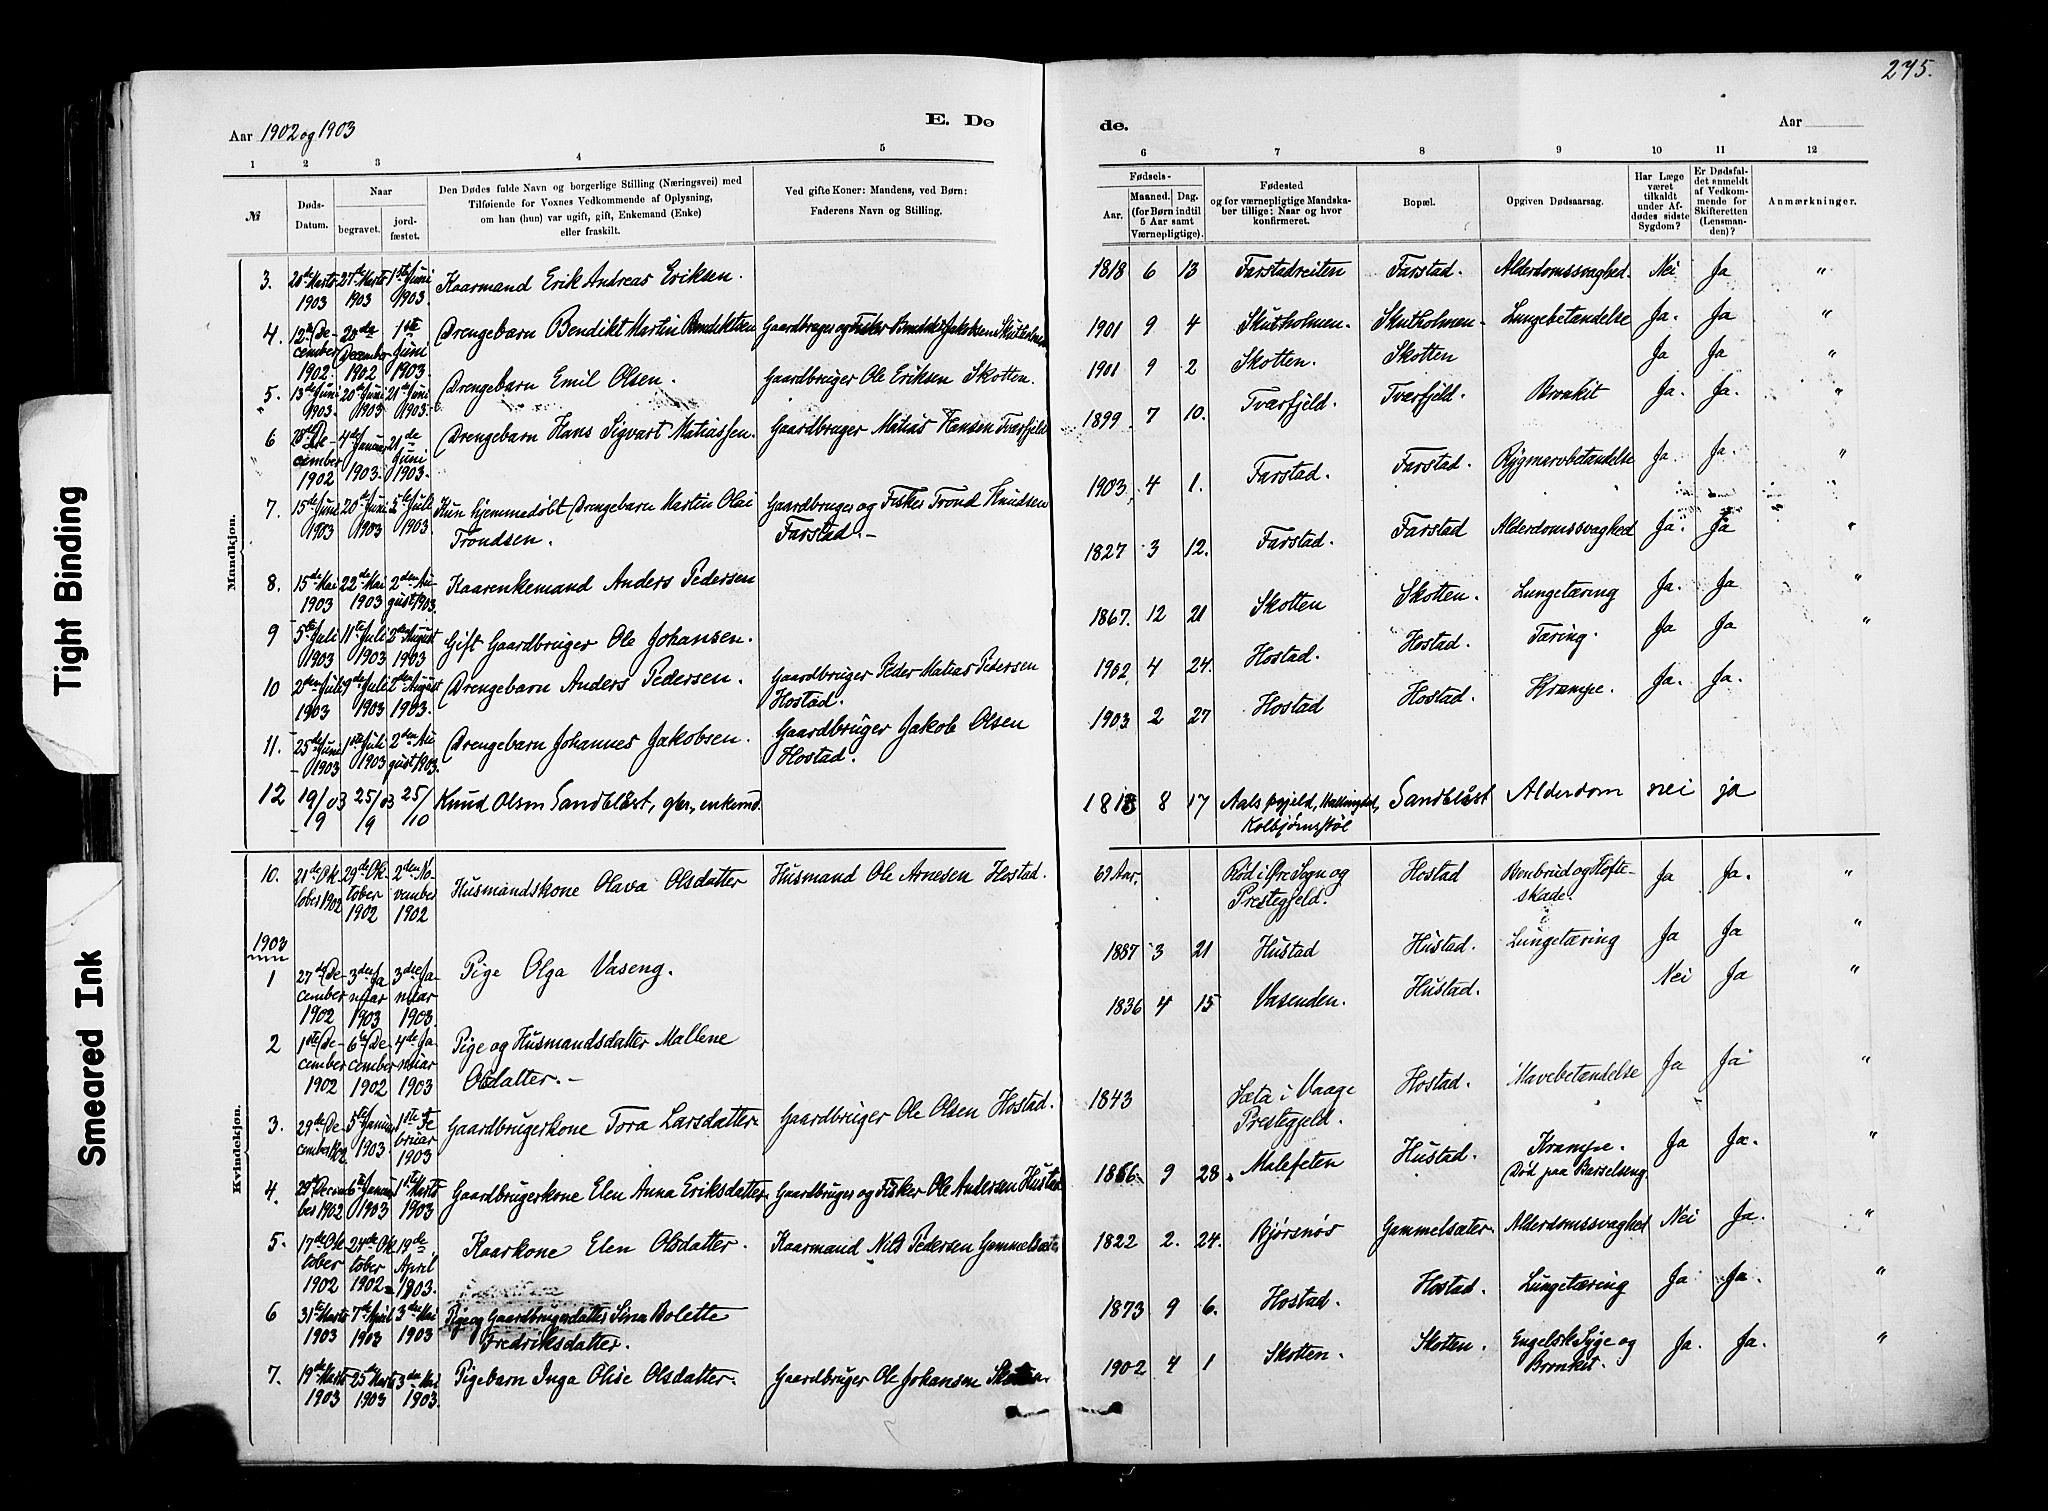 275.
Aar 1902 og 1903
E. Dø
de.
Aar
1 2 3 4 5 6 7 8 9 10 11 12
№
Døds-
Datum.
Naar
begravet.
jord-
fæstet.
Den Dødes fulde Navn og borgerlige Stilling (Næringsvei) med
Tilføiende for Voxnes Vedkommende af Oplysning,
om han (hun) var ugift, gift, Enkemand (Enke)
eller fraskilt.
Ved gifte Koner: Mandens, ved Børn:
Faderens Navn og Stilling.
Fødsels-
Aar.
Maaned.
Dag.
(for Børn indtil
5 Aar samt
Værnepligtige).
Fødested
og for værnepligtige Mandska-
ber tillige: Naar og hvor
konfirmeret.
Bopæl.
Opgiven Dødsaarsag.
Har Læge
været
tilkaldt
under Af-
dødes sidste
Sygdom?
Er Dødsfal-
det anmeldt
af Vedkom-
mende for
Skifteretten
(Lensman-
den)?
Anmærkninger.
Mandkjøn.
3. 27de Marts 1903 1ste Juni 1903. Kaarmand Erik Andreas Eriksen. 1818 6 13 Farstadreiten Farstad. Alderdomssvaghed. Nei Ja "
4. 12te December 1902. 20de December 1902 1ste Juni 1903. Drengebarn Bendikt Martin Bendiktsen Gaardbruger og Fisker Bendikt Jakobsen Skutholmen 1901 9 4 Skutholmen. Skutholmen. Lungebetændelse Ja. Ja "
5. 13de Juni 1903. 20de Juni 1903 21de Juni 1903. Drengebarn Emil Olsen. Gaardbruger Ole Eriksen Skotten. 1901 9 2 Skotten. Skotten Ja Ja "
6 28de December 1902 4de Januar 1903. 21de Juni 1903. Drengebarn Hans Sigvart Matiassen. Gaardbruger Matias Hansen Tværfjeld 1899 7 10. Tværfjeld. Tværfjeld. Bronkit Ja. Ja. "
7. 15de Juni 1903 20de Juni 1903 5te Juli 1903. Kun hjemmedøbt Drengebarn Martin Olai
Trondsen. Gaardbruger og Fisker Trond Knudsen
Farstad.- 1903 4 1. Farstad. Farstad. Rygmarvbetændelse Ja. Ja. "
8. 15de Mai 1903 22de Mai 1903 2den August 1903. Kaarenkemand Anders Pedersen 1827 3 12. Farstad. Farstad Alderdomssvaghed Ja. Ja "
9 5te Juli 1903 11te Juli 1903 2den August 1903 Gift Gaardbruger Ole Johansen. 1867. 12 21 Skotten Skotten. Lungetæring Ja. Ja "
10 2den Juli 1903 9de Juli 1903 2den August 1903. Drengebarn Anders Pedersen. Gaardbruger Peder Matias Pedersen
Hostad. 1902 4 24. Hostad. Hostad. Tæring. Ja Ja "
11. 25de Juni 1903 1ste Juli 1903 2den August 1903. Drengebarn Johannes Jakobsen. Gaardbruger Jakob Olsen
Hostad. 1903 2 27 Hostad Hostad. Krampe. Ja. Ja.
12 19/9 03 25/9 03 25/10 Knud Olsen Sandblåst, gbr., enkemd. 1813 8 17 Aals prgjeld, Hallingdal,
Kolbjørnsstøl Sandblåst Alderdom nei ja
Kvindekjøn.
10. 21de October 1902 29de October 1902 2den November 1902 Husmandskone Olava Olsdatter Husmand Ole Arnesen Hostad. 69 Aar. Rød i Øre Sogn og
Prestegjeld. Hostad Benbrud og Hofte-
skade. Ja Ja. "
1903
1 27de December 1902 3die Januar 1903 3die Januar 1903. Pige Olga Vaseng. 1887 3 21 Hustad Hustad. Lungetæring Ja Ja "
2 1ste December 1902 6te December 1902 4de Januar 1903 Pige og Husmandsdatter Mallene
Olsdatter.- 1836 4 15 Vasenden. Hustad. Nei Ja "
3. 29de December 1902 5te Januar 1903 1ste Februar 1903 Gaardbrugerkone Tora Larsdatter. Gaardbruger Ole Olsen Hostad. 1843 Sæta i Vaage
Prestegjeld. Hostad. Mavebetændelse Ja Ja "
4. 29de December 1902 6te Januar 1903 1ste Marts 1903 Gaardbrugerkone Elen Anna Eriksdatter. Gaardbruger og Fisker Ole Andersen Hustad 1866. 9 28. Malefeten Hustad. Krampe.
Død paa Barselseng. Ja Ja. "
5. 17de October 1902 24de October 1902 19de April 1903. Kaarkone Elen Olsdatter. Kaarmand Nils Pedersen Gammelsæter 1822 2. 24. Bjørsnøs Gammelsæter. Alderdomssvaghed Nei Ja. "
6 31te Marts 1903 7de April 1903 3die Mai 1903 Pige og Gaardbrugerdatter Sina Bolette
Fredriksdatter. 1873 9 6. Hostad. Hostad. Lungetæring Ja Ja. "
7. 19de Marts 1903 25de Marts 1903 3die Mai 1903. Pigebarn Inga Olise Olsdatter. Gaardbruger Ole Johansen Skotten. 1902 4 1 Skotten. Skotten. Engelsk Syge og
Bronkit. Ja. Ja. "
Tight Binding
Smeared Ink